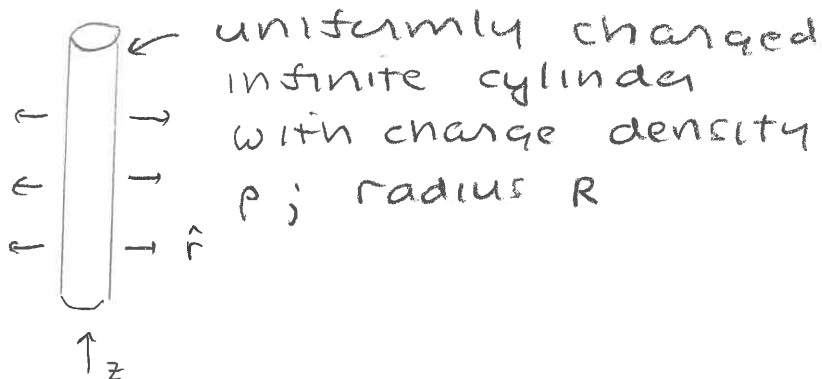 uniformly charged
infinite cylinder
with charge density
ρ; radius R
r̂
z